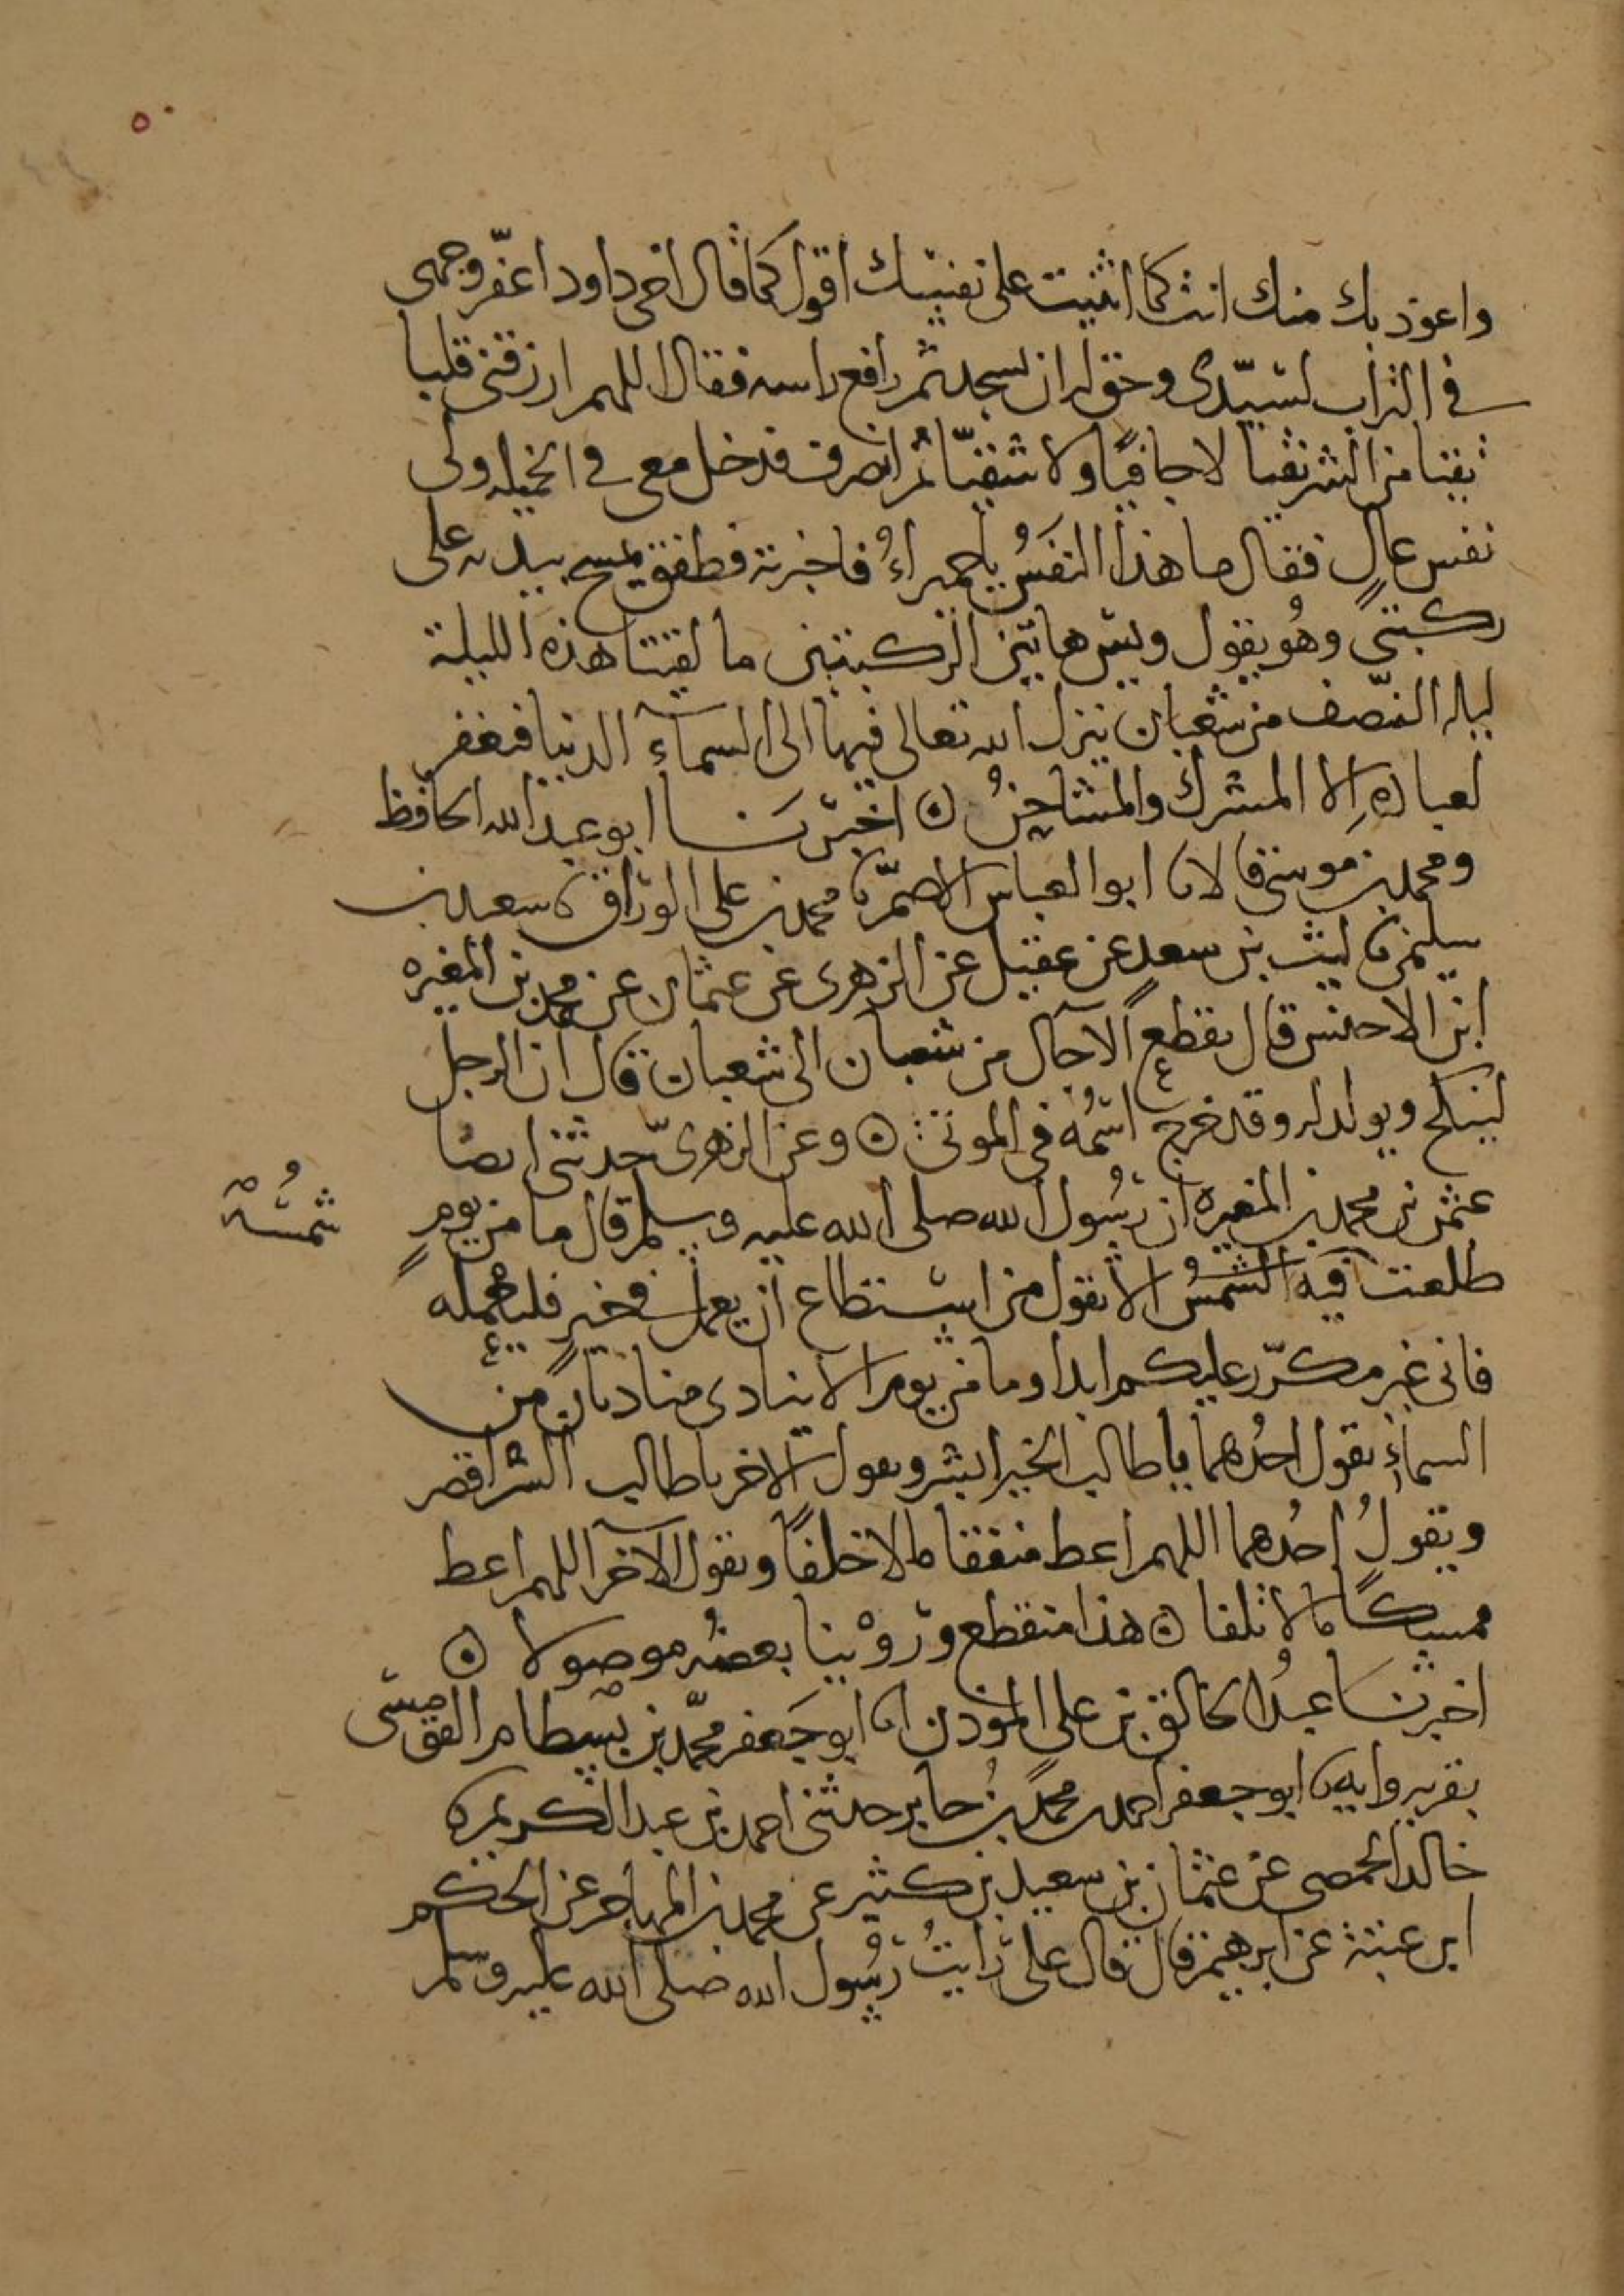 ٥٠
واعوذ بك منك انت كما اثنيت على نفسك اقول كما قال اخى داود اعفّر وجهى
فى التراب لسيّدى وحق له ان يسجد ثم رافع راسه فقال اللهم ارزقنى قلبا
نقيا من الشر نقيا لا جافيًا ولا شقيّا ثم انصرف فدخل معى فى الخميله ولى
نفس عالٍ فقال ما هذا النفَسُ يا حميراءُ فاخبرته فطفق يمسح بيديه على
ركبتىَّ وهُو يقول ويس هاتين الركبتين ما لقيتا هذه الليلة
ليله النصّف من شعبان ينزل الله تعالى فيها الى السمآء الدنيا فيغفر
لعباده اِلا المشرك والمشاحِنُ ۞ اخبرَنا ابو عبد الله الحافظ
ومحمد بن موسى قالا نا ابو العباس الاصمّ نا محمد بن على الورّاق نا سعيد بن
سليمن نا ليث بن سعد عن عقيل عن الزهرى عن عثمان عن محمد بن المغيره
ابن الاحنس قال تقطع الآجال من شعبان الى شعبان قال ان الرجل
لينكح ويولد له وقد خرج اسمُه فى الموتى ۞ وعن الزهرىّ حدثنى ايضًا
عثمن بن محمد بن المغيره ان رسُول الله صلى الله عليه وسلم قال ما من يومٍ
شمسُه
طلعت فيه الشمسُ الا يقول من استطاع ان يعمل فى خيرٍ فليعمله
فانى غير مكرّر عليكم ابدا وما من يوم الا ينادى مناديان من
السماءِ يقول احدُهما يا طالب الخير ابشر ويقول الاخر يا طالب الشر اقصر
ويقولُ احدُهما اللهم اعط منفقا مالا خلفًا ويقول الآخر اللهم اعط
ممسكًا مالا تلفا ۞ هذا منقطع ورُوْينا بعضُه موصولا ۞
اخبرنا عبدُ الخالق بن على الموذن انا ابو جَعفر محمّد بن بسْطام القومسى
بقريه وايه نا ابو جعفر احمد بن محمد بن جابر حدثنى احمد بن عبد الكريم نا
خالد الحمصى عن عثمان بن سعيد بن كثير عن محمد بن المهاجر عن الحكم
ابن عتيبة عن ابرهيم قال قال على رايتُ رسُول الله صلى الله عليه وسلم